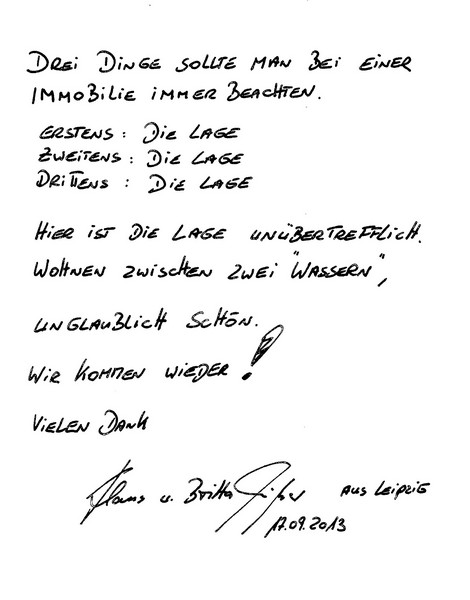 DREI DINGE SOLLTE MAN BEI EINER
IMMOBILIE IMMER BEACHTEN.
ERSTENS : DIE LAGE
ZWEITENS : DIE LAGE
DRITTENS : DIE LAGE
HIER IST DIE LAGE UNÜBERTREFFLICH.
WOHNEN ZWISCHEN ZWEI "WASSERN",
UNGLAUBLICH SCHÖN.
WIR KOMMEN WIEDER !
VIELEN DANK
u. Britta
AUS LEIPZIG
17.09.2013